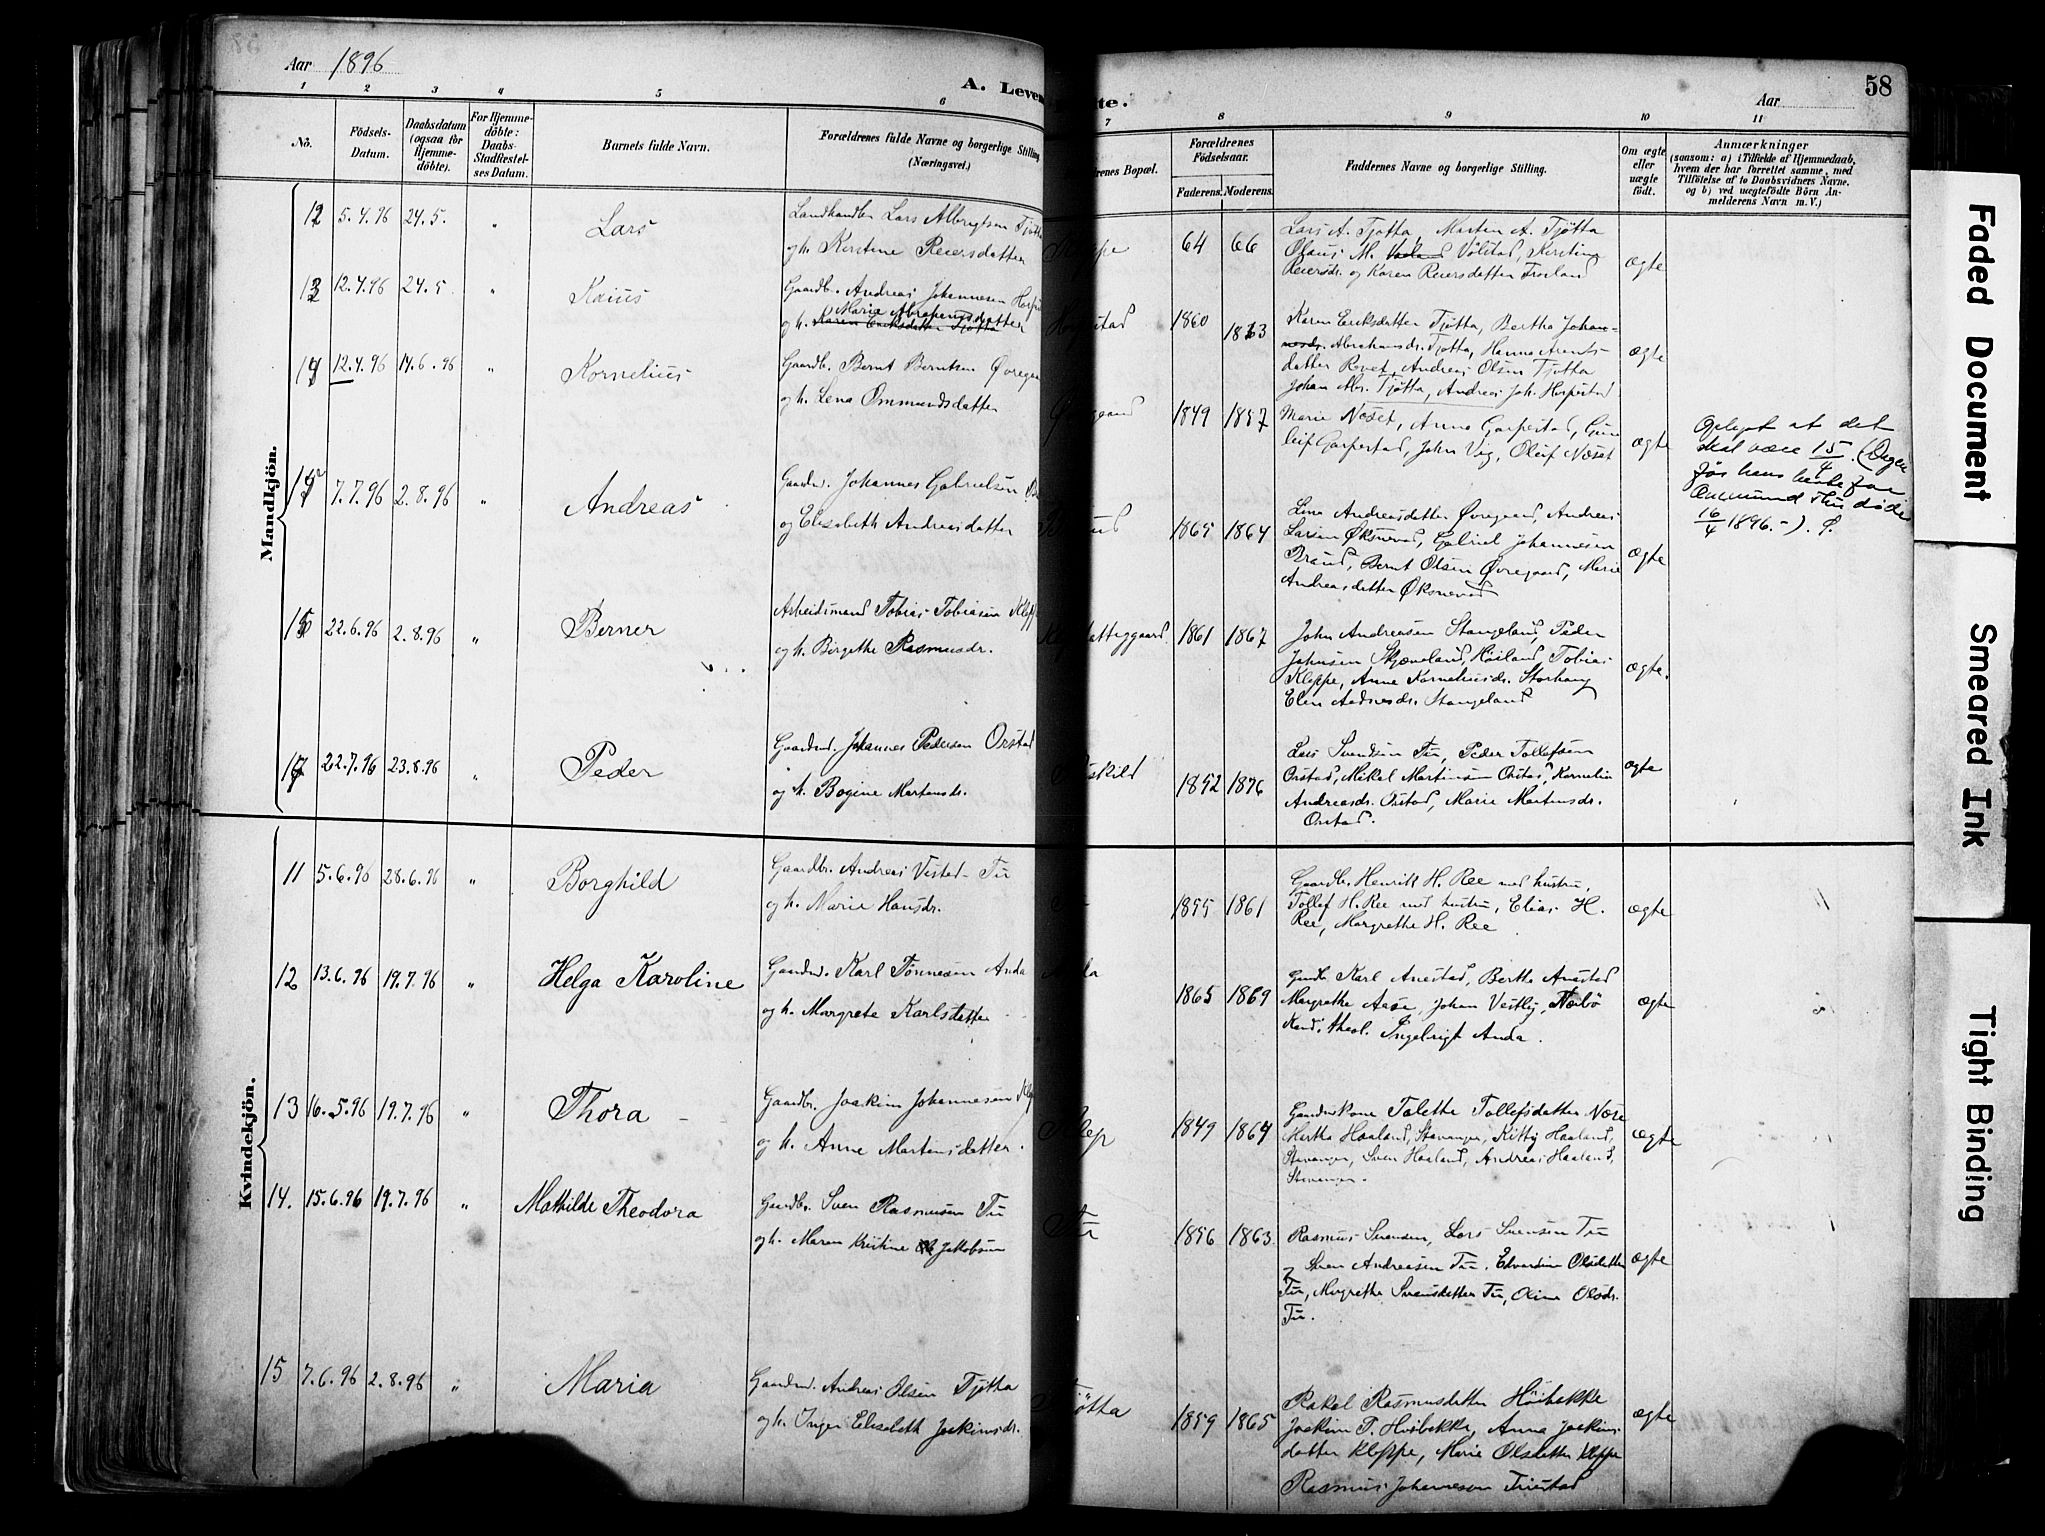 Aar 1896
A. Leven
te.
Aar
58
1 2 3 4 5 6 7 8 9 10 11
No.
Fødsels-
Datum.
Daabsdatum
(ogsaa for
Hjemme-
døbte).
For Hjemme-
døbte:
Daabs-
Stadfæstel-
ses Datum.
Barnets fulde Navn.
Forældrenes fulde Navne og borgerlige Stilling
(Næringsvei.)
renes Bopæl.
Forældrenes
Fødselsaar.
Faderens. Moderens.
Faddernes Navne og borgerlige Stilling.
Om ægte
eller
uægte
født.
Anmærkninger
(saasom: a) i Tilfælde af Hjemmedaab,
hvem der har forrettet samme, med
Tilføielse af to Daabsvidners Navne,
og b) ved uægtefødte Børn An-
melderens Navn m.V.)
Mandkjön.
12 5.4.96 24.5. " Lars
Landhandler Lars Albrigtsen Tjøtta
og h. Kirstine Reiersdatter
64 66
Lars A. Tjøtta, Morten A. Tjøtta
Olaus M. Vølstad, Kirstine
Reiersdr. og Karen Reiersdatter Froiland
ægte
13 12.4.96 24.5 " Kaius
Gaardb. Andreas Johannesen
Marie Abrahamsdatter
og h. Karen Eriksdatter Tjøtta
1860 1863
Karen Eriksdatter Tjøtta, Bertha Johan-
nesdr. Abrahamsdr. Tjøtta, Hanna Arents-
datter Rovet, Andreas Olsen Tjøtta
Johan Abr. Tjøtta, Andreas Joh. Horpestad
ægte
14 12.4.96 14.6.96 " Kornelius
Gaardb. Bernt Berntsen
og h. Lena Ommundsdatter
1849 1857
Marie Næset, Anna Garpestad, Gun
leif Garpestad, John Vig, Oluf Næset
ægte
Oplyst at det
skal være 15/4. (Dagen
før hans
Ommund Thu døde
16/4 1896.-). G.
15 7.7.96 2.8.96 " Andreas
Gaardm. Johannes Gabrielsen
og Elisabeth Andreasdatter
1865 1864
Lina Andreasdatter Øvregaard, Andreas
Larsen Øksnevad, Gabriel Johannesen
Braud, Bernt Olsen Øvregaard, Marie
Andreasdatter Øksnevad
ægte
16 22.6.96 2.8.96 " Berner
Arbeidsmand Tobias Tobiasen
og h. Birgithe Rasmusdr.
1861 1867
John Andreasen Stangeland, Peder
Johnsen Skjæveland, Høiland, Tobias
Kleppe, Anne Korneliusdr. Storhaug
Elen Andreasdr. Stangeland
ægte.
17 22.7.96 23.8.96 " Peder
Gaardm. Johannes Pedersen Orstad
og h. Bogine Martensdr.
1852 1876
Lars Svendsen Tu, Peder Tollefsen
Orstad, Mikal Martinsen Orstad, Kornelia
Andreasdr. Orstad, Marie Martensdr.
Orstad.
ægte
Kvindekjön.
11 5.6.96 28.6.96 " Borghild
Gaardb. Andreas Vistad Tu
og h. Marie Hansdr.
1855 1861
Gaardb. Henrik H. Ree med hustru,
Tollef H. Ree med hustru, Elias H.
Ree, Margrethe H. Ree
ægte
12 13.6.96 19.7.96 " Helga Karoline
Gaardm. Karl Tønnesen Anda
og h. Margrete Karlsdatter
1865 1869
Gaardb. Karl Anestad, Bertha Anestad
Margrethe Aase, Johan Vestly, Nærbø
Kand. theol. Ingebrigt Anda.
ægte
13 16.5.96 19.7.96 " Thora
Gaardb. Joakim Johannesen
og h. Anne Martensdatter.
1849 1864
Gaardmkone Talette Tollefsdatter
Hertha Haaland, Stavanger, Kitty Haaland,
Stavanger, Sven Haaland, Andreas Haaland,
Stavanger.
ægte
14. 15.6.96 19.7.96 " Mathilde Theodora
Gaardb. Sven Rasmusen Tu
og h. Maren Kristine Jakobsen
Tu
1856 1863
Rasmus Svendsen, Lars Svensen Tu
Søren Andreasen Tu, Edvardine Olsdatter
Tu, Margrethe Svensdatter Tu, Oline Olsdr.
Tu.
ægte
15 7.6.96 2.8.96 " Maria
Gaardm. Andreas Olsen Tjøtta
og h. Inger Elisabeth Joakimsdr.
1859 1865
Rakel Rasmusdatter Höibakke
Joakim T. Hoibakke, Anna Joakims-
datter Kleppe, Marie Olsdatter Kleppe
Rasmus Johannesen Friestad
ægte
Faded Document
Smeared Ink
Tight Binding